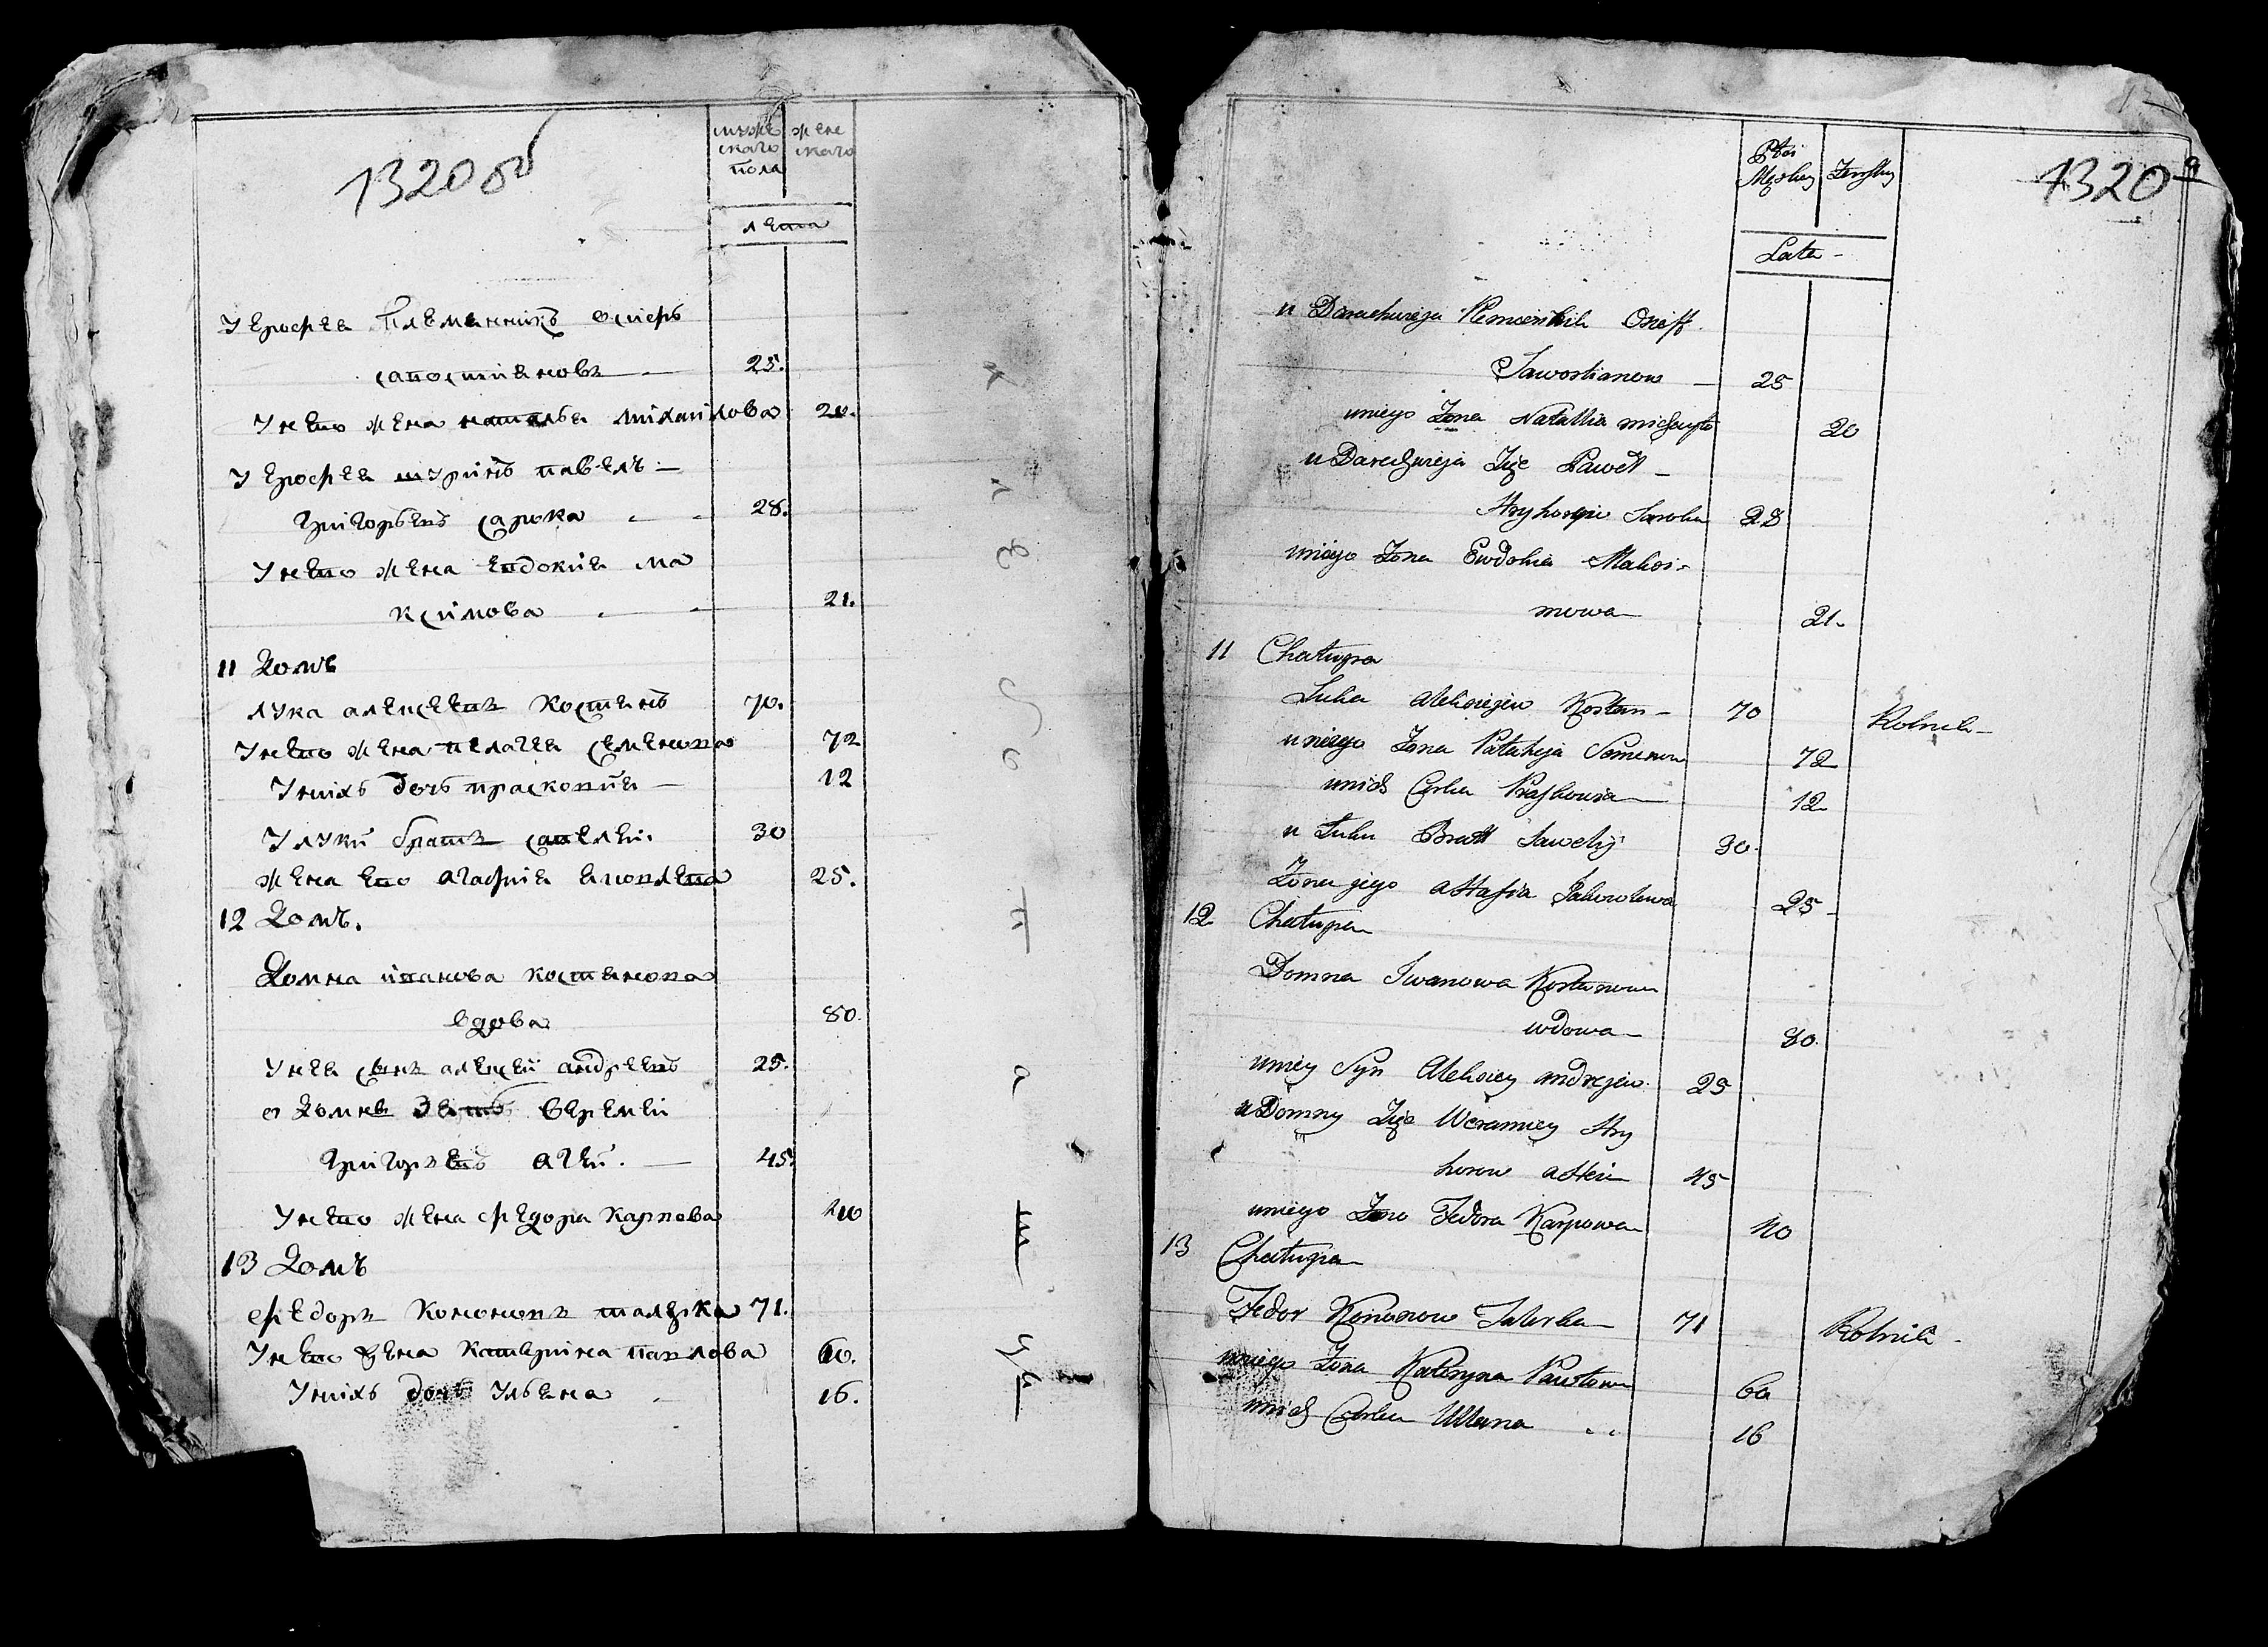 1320 об
мужескаго пола
женскаго
лета
У Ерофея племянникъ осифъ
савостияновъ — 25.
У нево жена наталья михаилова 20.
У Ерофея шуринъ павелъ —
григорьевъ сарока 28.
У нево жена Евдокия ма
ксимова 21.
11 Домъ
лука алексеевъ костянъ 70.
У нево жена пелагея семенова 72
У нихъ дочь прасковия — 12
У луки братъ савелей. 30
жена ево агафия яковлева 25.
12 Домъ.
Домна иванова костянова
вдова 80.
У нея сынъ алексей андреевъ 25.
о Домне зять веремей
григорьевъ агей. — 45.
У нево жена федора карпова 40
13 Домъ
федоръ кононовъ талерка 71.
У нево жена катерина павлова 60.
У нихъ дочь Ульяна 16.
1320 а
Płci
Męskiey Żeńskiey
Lata -
u Darachwieja Plemiennik Osiff
Sawostianow — 25
u niego Zona Natallia michayło 20
u Darachwieja Zięć Paweł —
Hryhoryew Saroka 28
u niego Zona Ewdokia Maksi-
mowa — 21.
11 Chałupa
Łuka Alexiejew Kostan — 70 Rolnik —
u niego Zona Pałaheja Semenowa 72
u nich Corka Praskowia — 12
u Łuki Bratt Sawely 30.
Zona jego aHafia Jakowlewa 25 -
12. Chałupa
Domna Iwanowa Kostanowa
wdowa — 80.
u niey Syn Alexiey andrejew 25
u Domny Zięć Weramiey Hry
horow aHei — 45
u niego Zona Fedora Karpowa 40
13 Chałupa
Fedor Kononow Talerka — 71 Rolnik -
u niego Zona Kateryna Pawłowa 60
u nich Corka Ullana 16